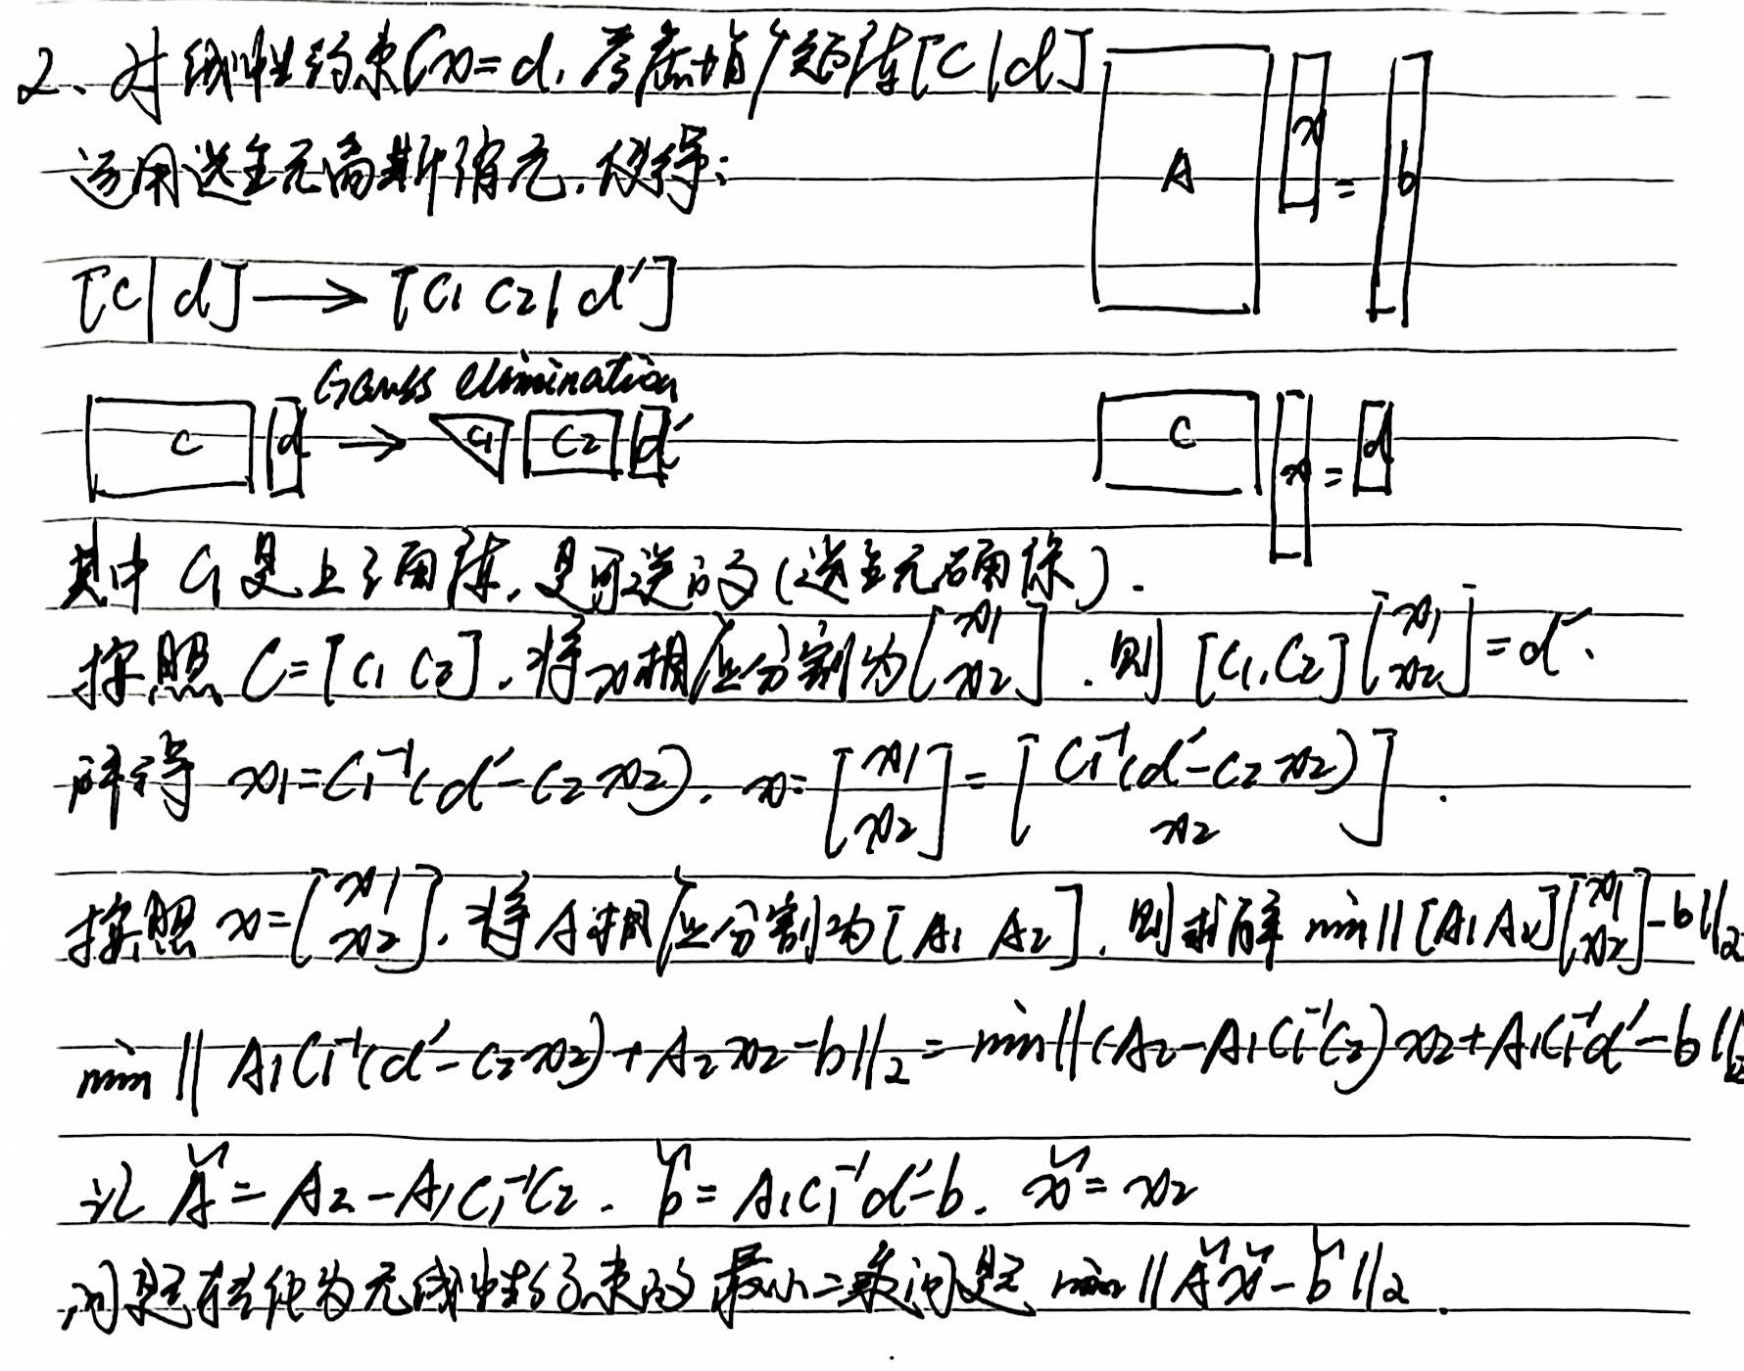 2、对线性约束Cx=d,考虑增广矩阵[C|d]
运用选主元高斯消元,使得:
A x = b
[C|d] → [C1 C2|d']
Gauss elimination
C d → C1 C2 d'
C x = d
其中 C1 是上三角阵,是可逆的(选主元确保).
按照 C=[C1 C2],将x相应分割为[x1 x2].则 [C1,C2][x1 x2]=d'.
解得 x1=C1^-1(d'-C2x2). x=[x1 x2]=[C1^-1(d'-C2x2) x2].
按照 x=[x1 x2],将A相应分割为[A1 A2],则求解 min||[A1 A2][x1 x2]-b||2
min||A1C1^-1(d'-C2x2)+A2x2-b||2=min||(A2-A1C1^-1C2)x2+A1C1^-1d'-b||2
记 Ã=A2-A1C1^-1C2. b̃=A1C1^-1d'-b. x̃=x2
问题转化为无线性约束的最小二乘问题 min||Ãx̃-b̃||2.